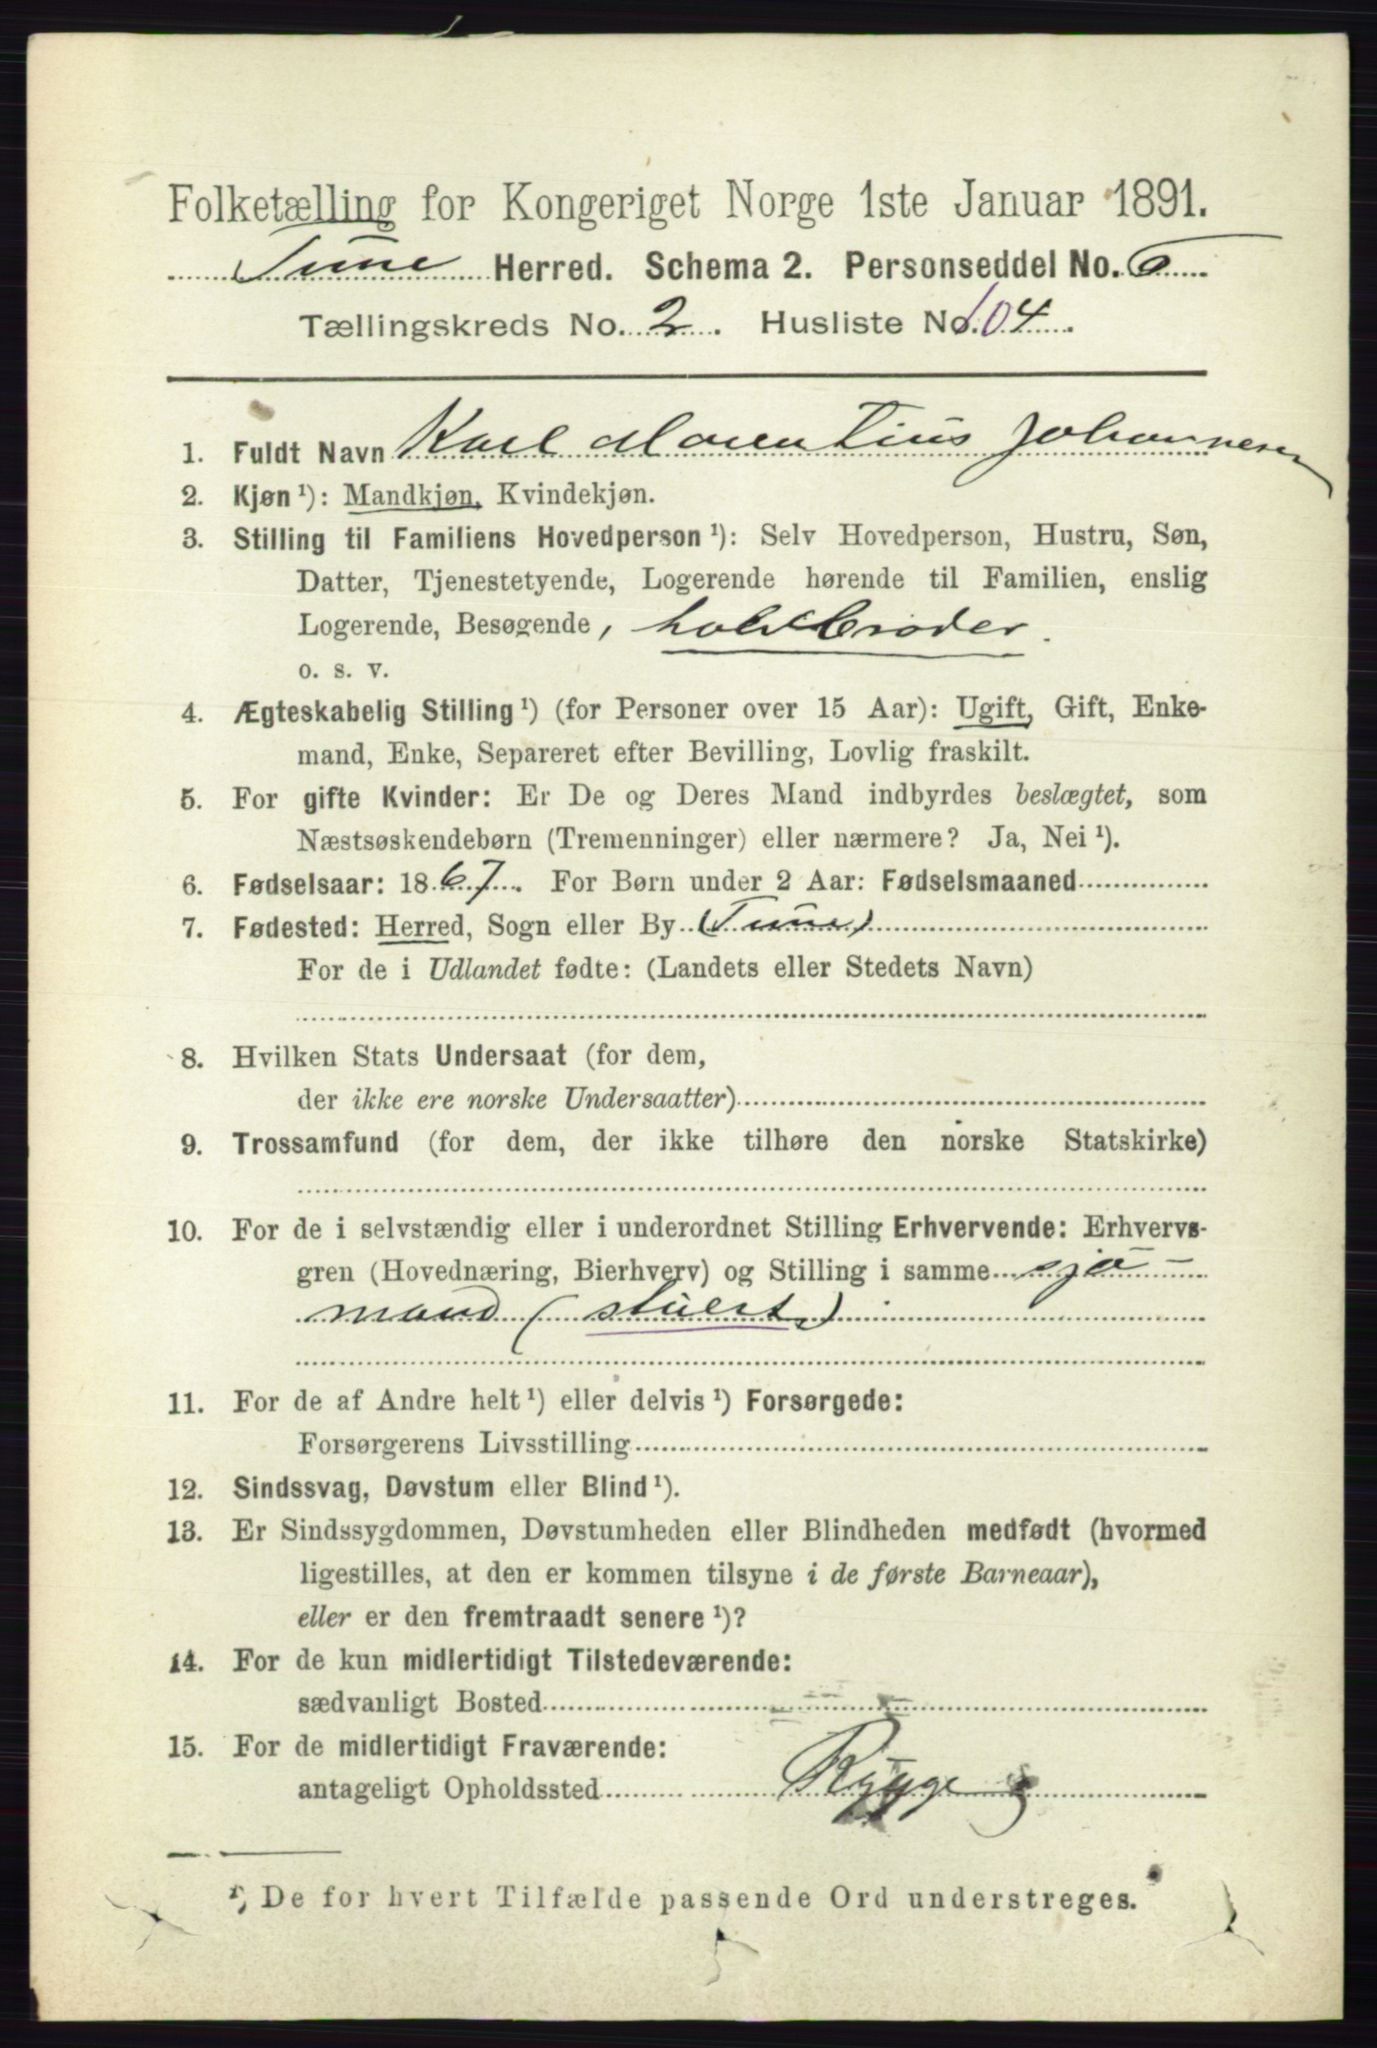 Folketælling for Kongeriget Norge 1ste Januar 1891.
Tune Herred. Schema 2. Personseddel No. 6
Tællingskreds No. 2. Husliste No. 104.
1. Fuldt Navn Karl Marentius Johannesen
2. Kjøn ¹): Mandkjøn, Kvindekjøn.
3. Stilling til Familiens Hovedperson ¹): Selv Hovedperson, Hustru, Søn,
Datter, Tjenestetyende, Logerende hørende til Familien, enslig
Logerende, Besøgende, halvbroder.
o. s. v.
4. Ægteskabelig Stilling ¹) (for Personer over 15 Aar): Ugift, Gift, Enke-
mand, Enke, Separeret efter Bevilling, Lovlig fraskilt.
5. For gifte Kvinder: Er De og Deres Mand indbyrdes beslægtet, som
Næstsøskendebørn (Tremenninger) eller nærmere? Ja, Nei ¹).
6. Fødselsaar: 1867. For Børn under 2 Aar: Fødselsmaaned
7. Fødested: Herred, Sogn eller By (Tune)
For de i Udlandet fødte: (Landets eller Stedets Navn)
8. Hvilken Stats Undersaat (for dem,
der ikke ere norske Undersaatter)
9. Trossamfund (for dem, der ikke tilhøre den norske Statskirke)
10. For de i selvstændig eller i underordnet Stilling Erhvervende: Erhvervs-
gren (Hovednæring, Bierhverv) og Stilling i samme sjø-
mand (stuert)
11. For de af Andre helt ¹) eller delvis ¹) Forsørgede:
Forsørgerens Livsstilling
12. Sindssvag, Døvstum eller Blind ¹).
13. Er Sindssygdommen, Døvstumheden eller Blindheden medfødt (hvormed
ligestilles, at den er kommen tilsyne i de første Barneaar),
eller er den fremtraadt senere ¹)?
14. For de kun midlertidigt Tilstedeværende:
sædvanligt Bosted
15. For de midlertidigt Fraværende:
antageligt Opholdssted Rygge
¹) De for hvert Tilfælde passende Ord understreges.